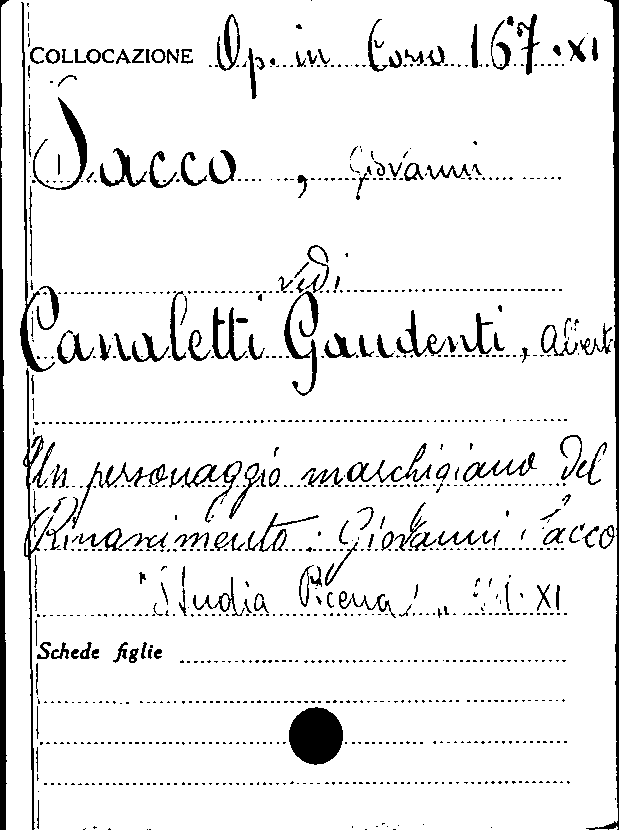 COLLOCAZIONE Op. in Corso 167.XI
Sacco, Giovanni
vedi
Canaletti Gaudenti, Albert
Un personaggio marchigiano del
Rinascimento: Giovanni Sacco
"Studia Picena" XI
Schede figlie